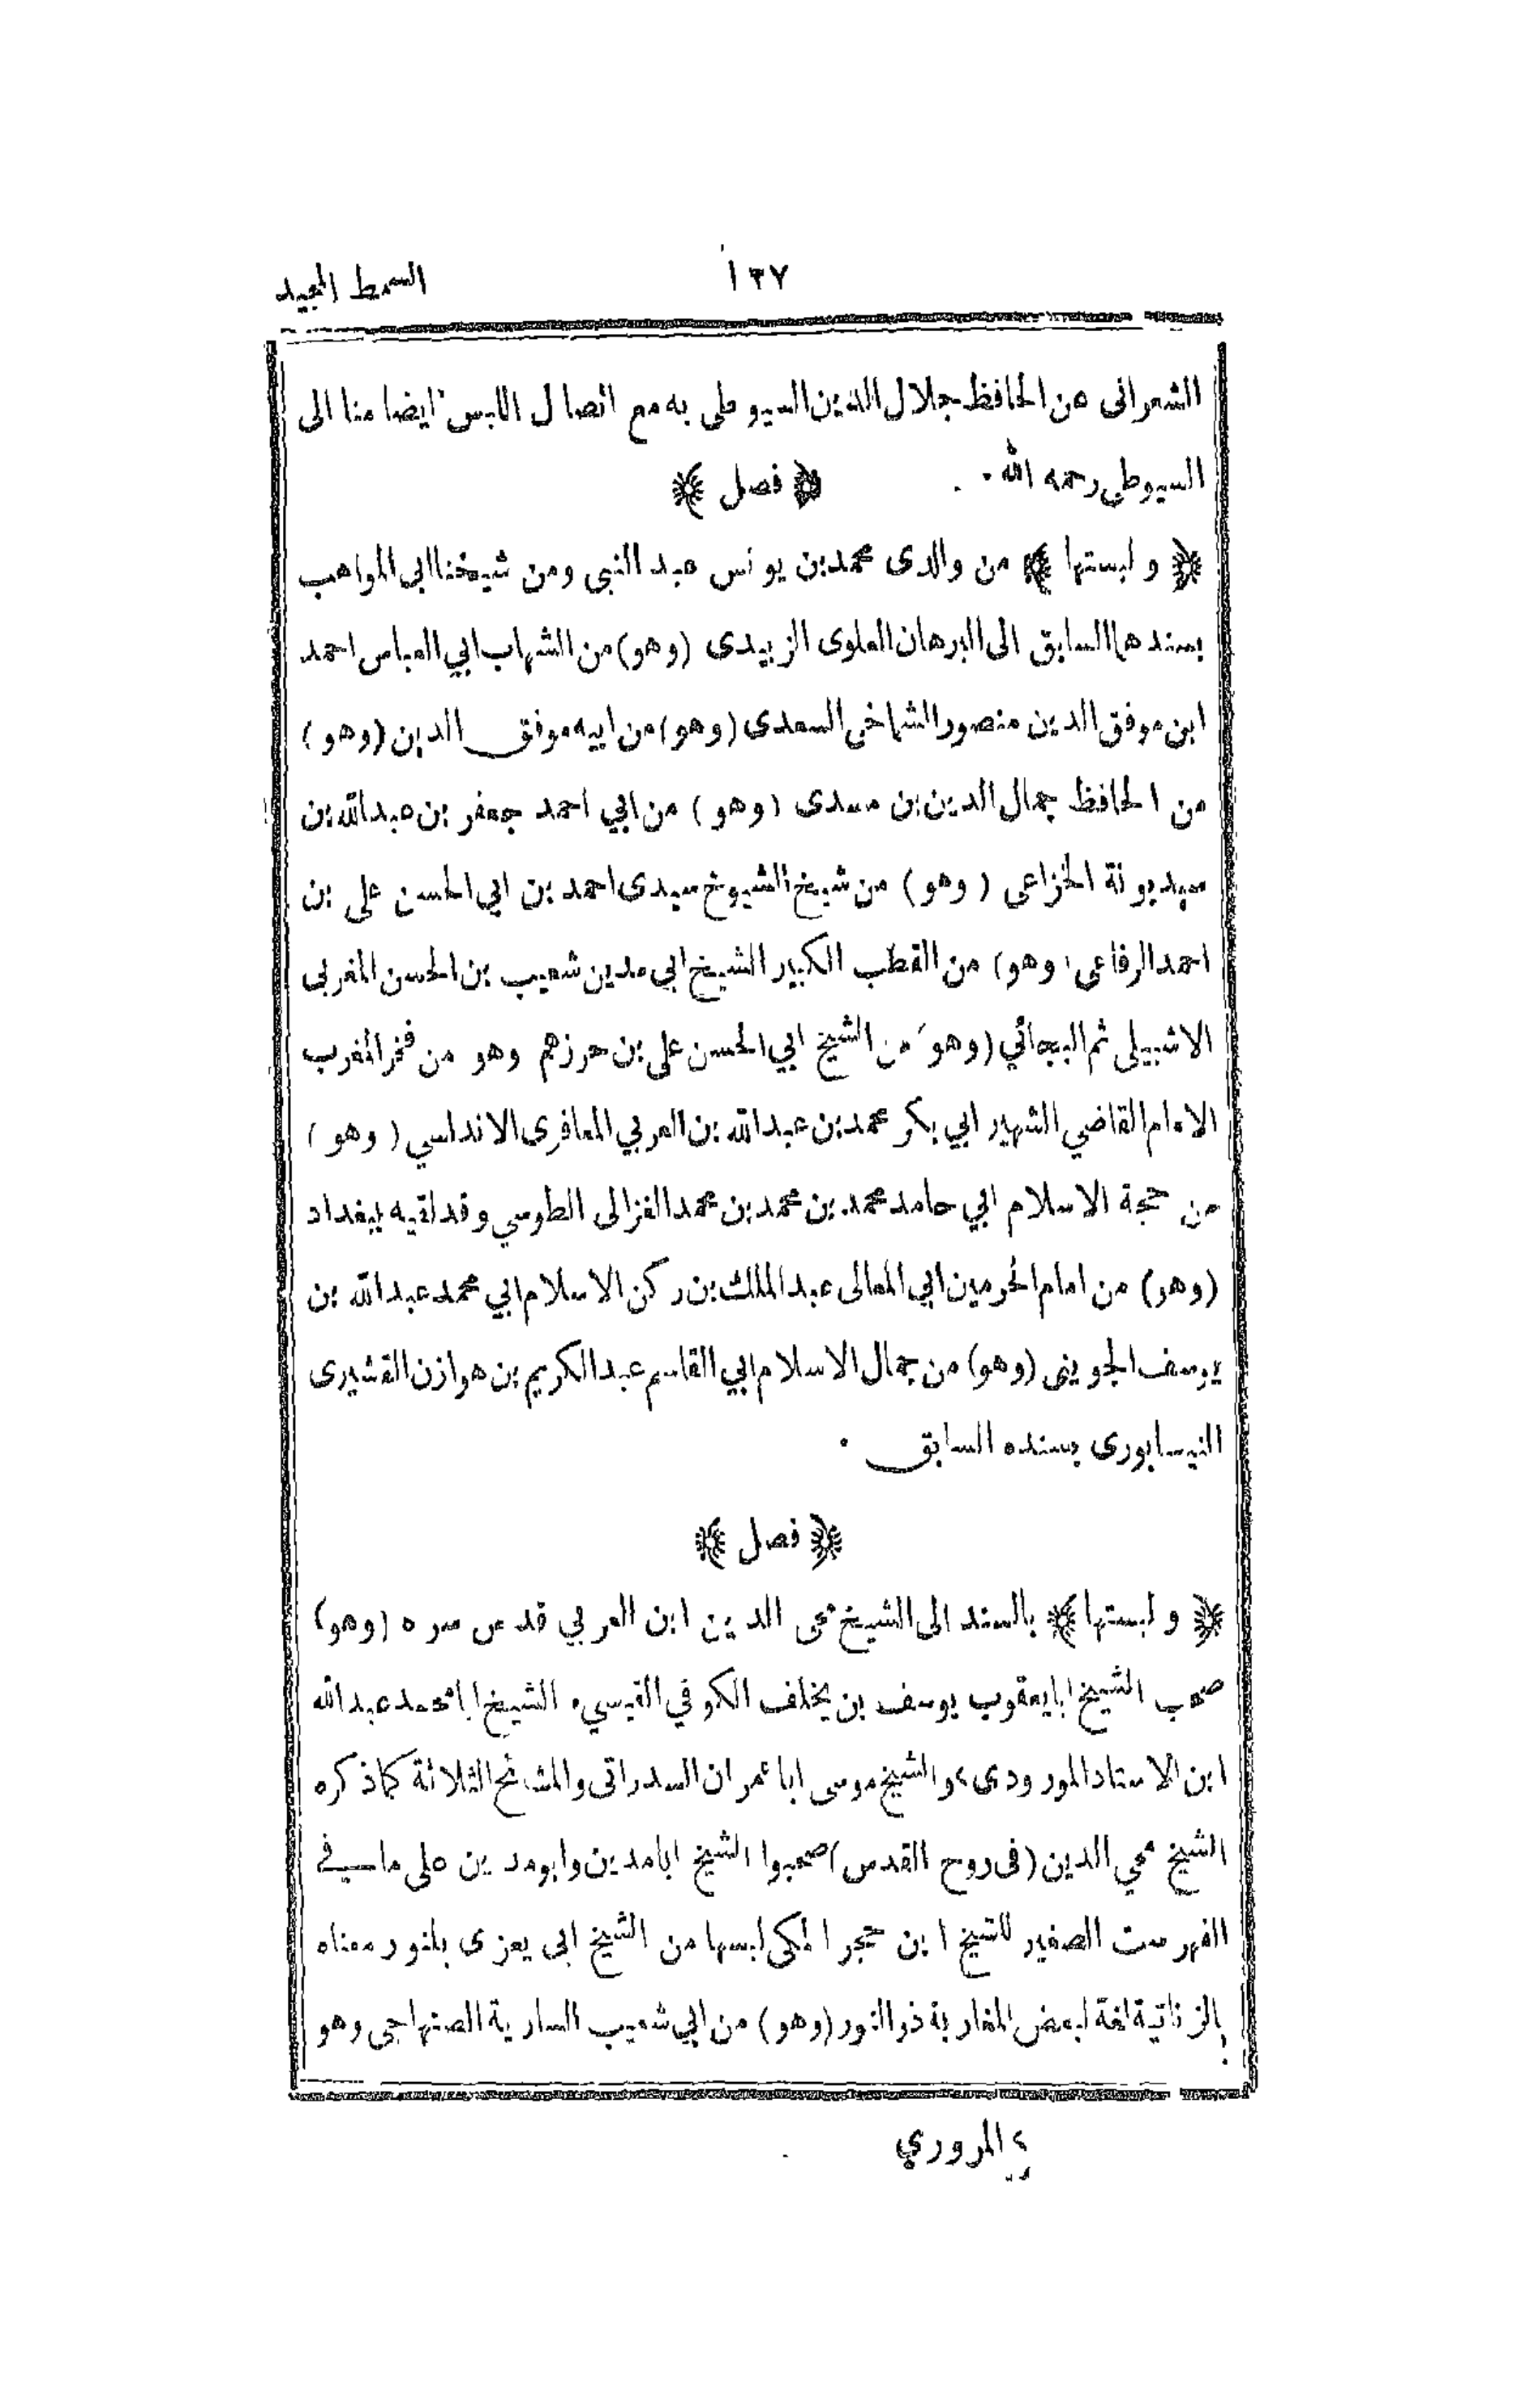 السمط المجيد ١٣٧
الشعرانى عن الحافظ جلال الدين السيوطى به مع اتصال اللبس ايضا منا الى
السيوطى رحمه الله . ﴿ فصل ﴾
﴿ ولبستها ﴾ من والدى محمد بن يونس عبد النبى ومن شيخنا ابى المواهب
بسندهما السابق الى البرهان العلوى الزبيدى (وهو) من الشهاب ابي العباس احمد
ابن موفق الدين منصور الشماخى السعدى (وهو) من ابيه موفق الدين (وهو)
من الحافظ جمال الدين بن مسدى (وهو) من ابي احمد جعفر بن عبدالله بن
سيد بونة الخزاعى (وهو) من شيخ الشيوخ سيدى احمد بن ابي الحسن على بن
احمد الرفاعى (وهو) من القطب الكبير الشيخ ابي مدين شعيب بن الحسن المغربى
الاشبيلى ثم البجائي (وهو) من الشيخ ابي الحسن على بن حرزهم وهو من فخر المغرب
الامام القاضي الشهير ابي بكر محمد بن عبدالله بن العربي المعافرى الاندلسي (وهو)
من حجة الاسلام ابي حامد محمد بن محمد بن محمد الغزالى الطوسي وقد لقيه ببغداد
(وهو) من امام الحرمين ابي المعالى عبد الملك بن ركن الاسلام ابي محمد عبدالله بن
يوسف الجوينى (وهو) من جمال الاسلام ابي القاسم عبد الكريم بن هوازن القشيرى
النيسابورى بسنده السابق .
﴿ فصل ﴾
﴿ ولبستها ﴾ بالسند الى الشيخ محى الدين ابن العربي قدس سره (وهو)
صحب الشيخ ابا يعقوب يوسف بن يخلف الكوفي القيسي، الشيخ ابا محمد عبدالله
ابن الاستاد المورودى ٤ والشيخ موسى ابا عمران السدراتى والمشائخ الثلاثة كما ذكره
الشيخ محي الدين (فى روح القدس) صحبوا الشيخ ابا مدين وابو مدين على ما في
الفهرست الصغير للشيخ ابن حجر المكى لبسها من الشيخ ابى يعزى بلنور معناه
بالزناتية لغة لبعض المغاربة ذو النور (وهو) من ابي شعيب السارية الصنهاجى وهو
٤ المروري